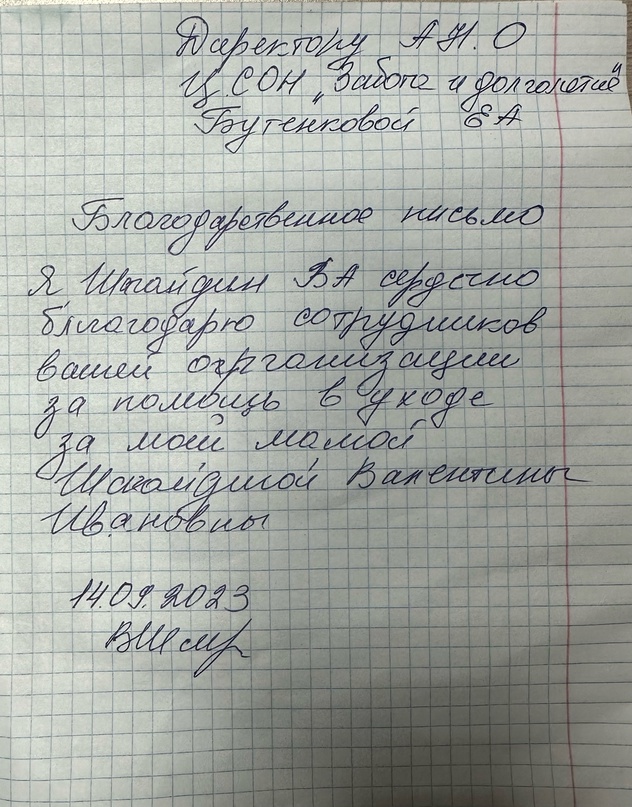 Директору А Н. О
Ц. СОН „Забота и долголетие"
Бутенковой ЕА
Благодарственное письмо
Я ВА сердечно
благодарю сотрудников
вашей организации
за помощь в уходе
за моей мамой
Валентины
Ивановны
14.09.2023